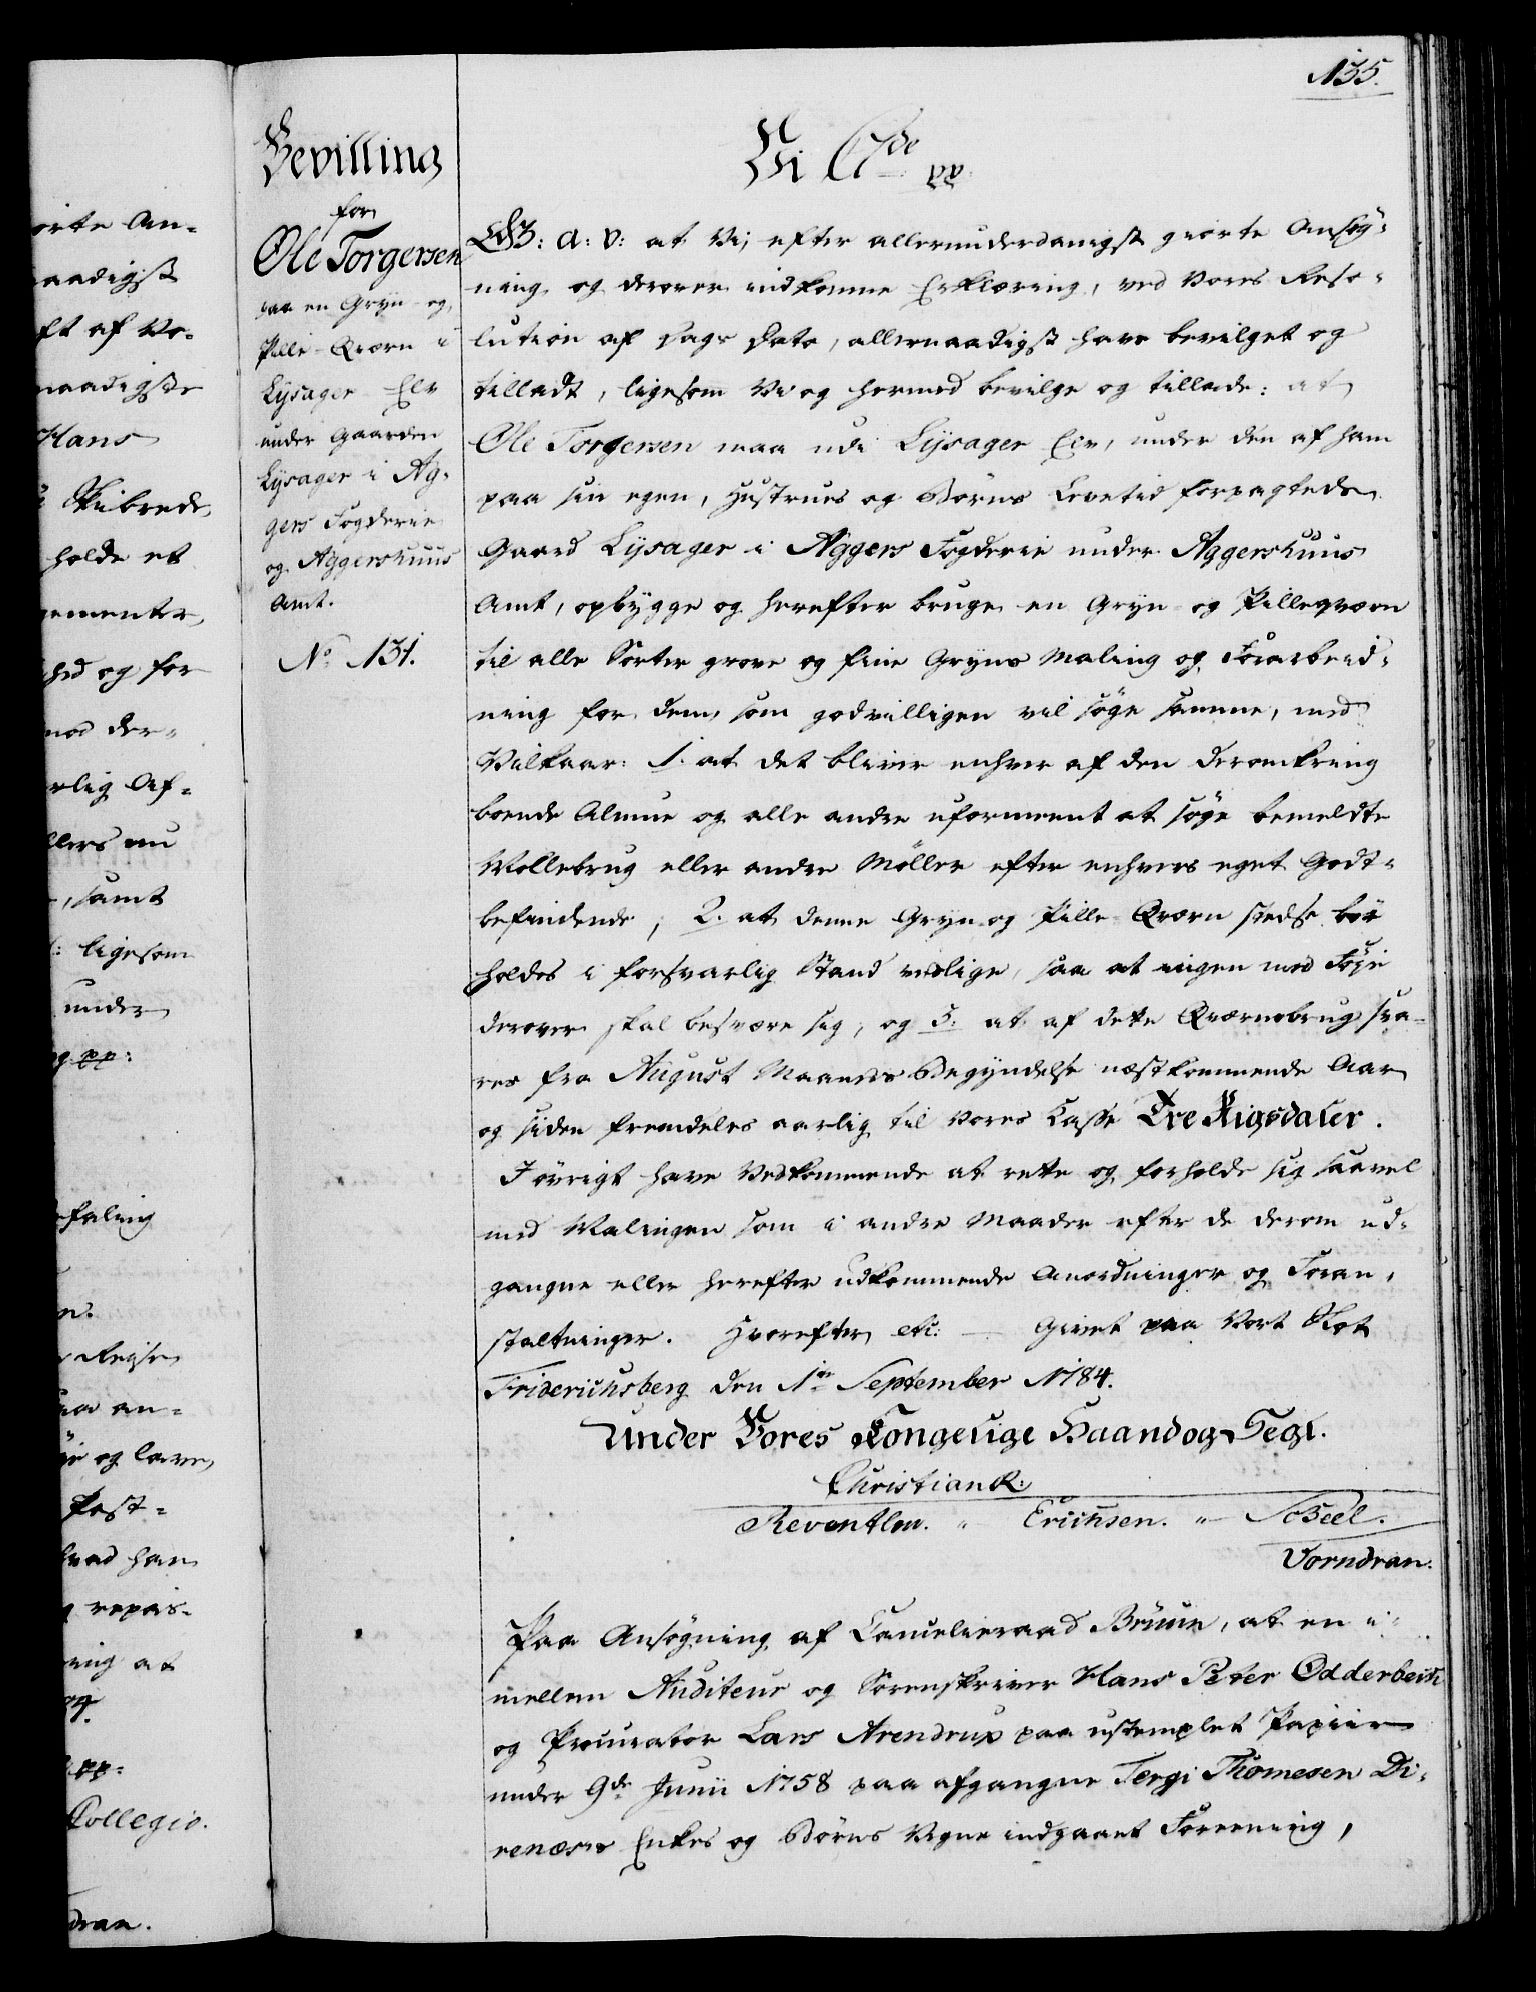 135.
Bevilling
for
Ole Torgersen
paa en Gryn- og
Pille-Qværn i
Lysager Elv
under Gaarden
Lysager i Ag-
gers Fogderie
og Aggershuus
Amt.
No 131.
Vi C 7de pp
G: a: V: at Vi, efter allerunderdanigst giorte Ansøg-
ning og derover indkomne Erklæring, ved Vores Reso-
lution af Dags Dato, allernaadigst have bevilget og
tilladt, ligesom Vi og hermed bevilge og tillade: at
Ole Torgersen maa udi Lysager Elv, under den af ham
paa sin egen, Hustrues og Børns Levetid forpagtede
Gaard Lysager i Aggers Fogderie under Aggershuus
Amt, opbygge og herefter bruge en Gryn- og Pilleqværn
til alle Sorter grove og fine Gryns Maling og Forarbeid-
ning for dem, som godvilligen vil søge samme, med
Vilkaar: 1. at det bliver enhver af den deromkring
boende Almue og alle andre uformeent at søge bemeldte
Møllebrug eller andre Møller efter enhvers eget Godt-
befindende, 2. at denne Gryn- og Pille-Qværn stedse bør
holdes i forsvarlig Stand vedlige, saa at ingen med Føje
derover skal besvære sig, og 3. at af dette Qværnebrug sva-
res fra August Maaneds Begyndelse næstkommende Aar
og siden fremdeles aarlig til Vores Casse Tre Rigsdaler.
I øvrigt have Vedkommende at rette og forholde sig saavel
med Malingen som i andre Maader efter de derom ud-
gangne eller herefter udkommende Anordninger og Foran-
staltninger. Hvorefter etc: — Givet paa Vort Slot
Friderichsberg den 1te September 1784.
Under Vores Kongelige Haand og Segl.
Christian R:
Reventlow. " Erichsen. " Scheel.
Vorndran.
Paa Ansøgning af Cancelieraad Bruun, at en i-
mellem Auditeur og Sorenskriver Hans Peter Odderbech
og Procurator Lars Arendrup paa ustemplet Papiir
under 9de Junii 1758 paa afgangne Tergi Thomesen Di-
renæses Enkes og Børns Vegne indgaaet Foreening,
orte An-
aadigst
ft af Vo-
naadigste
Hans
Skibrede
holde et
ementer,
hed og for
mod der-
rlig Af-
llers nu
, samt
: ligesom
under
og pp:
faling
n.
Reise
aa an-
og lave
Post-
hvad han
repar-
ing at
pp:
Collegio.
dran.